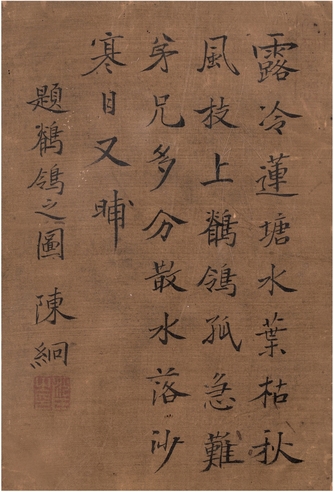 露冷蓮塘水葉枯秋
風枝上鶺鴒孤急難
弟兄多分散水落沙
寒日又晡
題鶺鴒之圖 陳絅